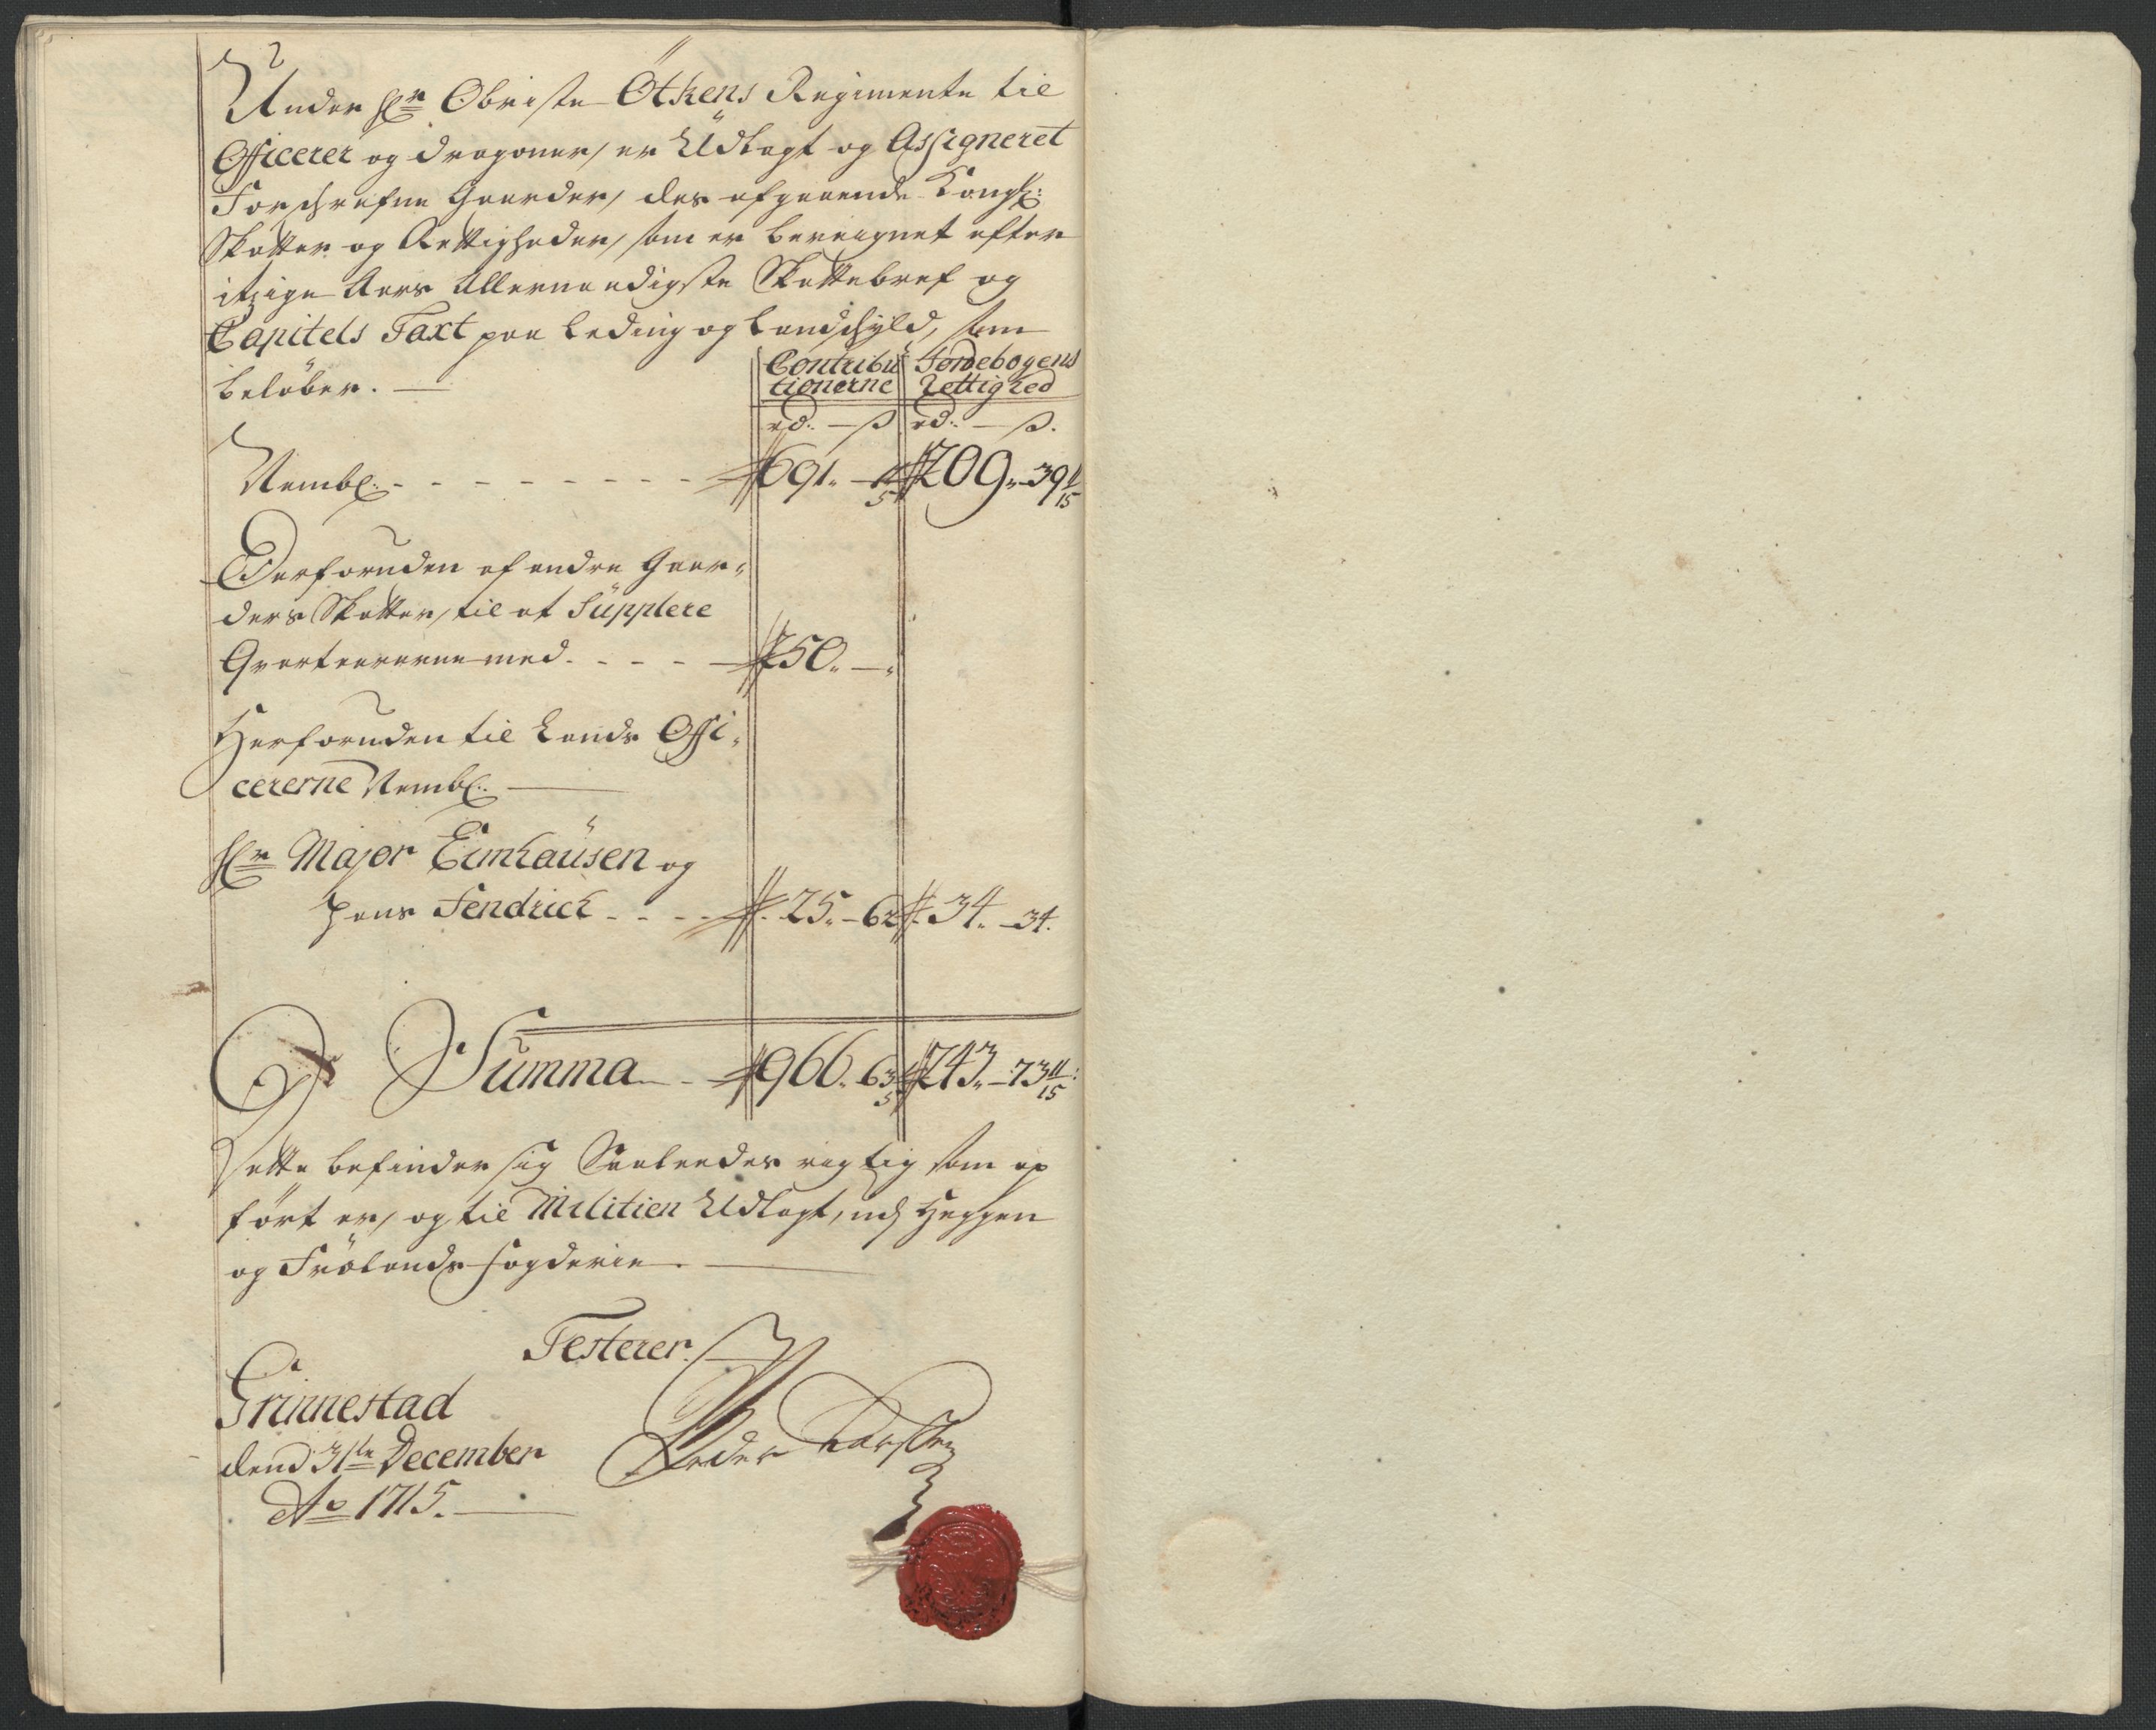 Under hr Obriste Ötkens Regimente til
Officerer og dragoner, er Udlagt og Assigneret
Forschrefne Gaarder, des afgaaende Kongl:
Skatter og Rettigheder, som er bereignet efter
itzige Aars Allernaadigste Skattebref og
Capitels Taxt paa Leding og Landschyld, som
beløber. —
Contribu tionerne
Jordebogens Rettighed
rd: — ß rd: — ß.
Nembl: - - - - 691. - 1/5 709. - 39 11/15
Derforuden af andre Gaar-
ders Skatter, til at Süpplere
Qvarteererne med. - - - 250. —
Herforuden til Lands Offi-
cererne Nembl:
Hr Major Eimhaüsen og
hans Fendrich - - - 25. - 62 34. - 34.
Summa - 966. 63 743. - 73 11/15
Dette befinder sig Saaledes rigtig som op
fört er, og til Militien Udlagt, udj Heggen
og Frölands fogderie.
Testerer
Grinnestad
dend 31te December
Ao 1715.
Peder Larssen